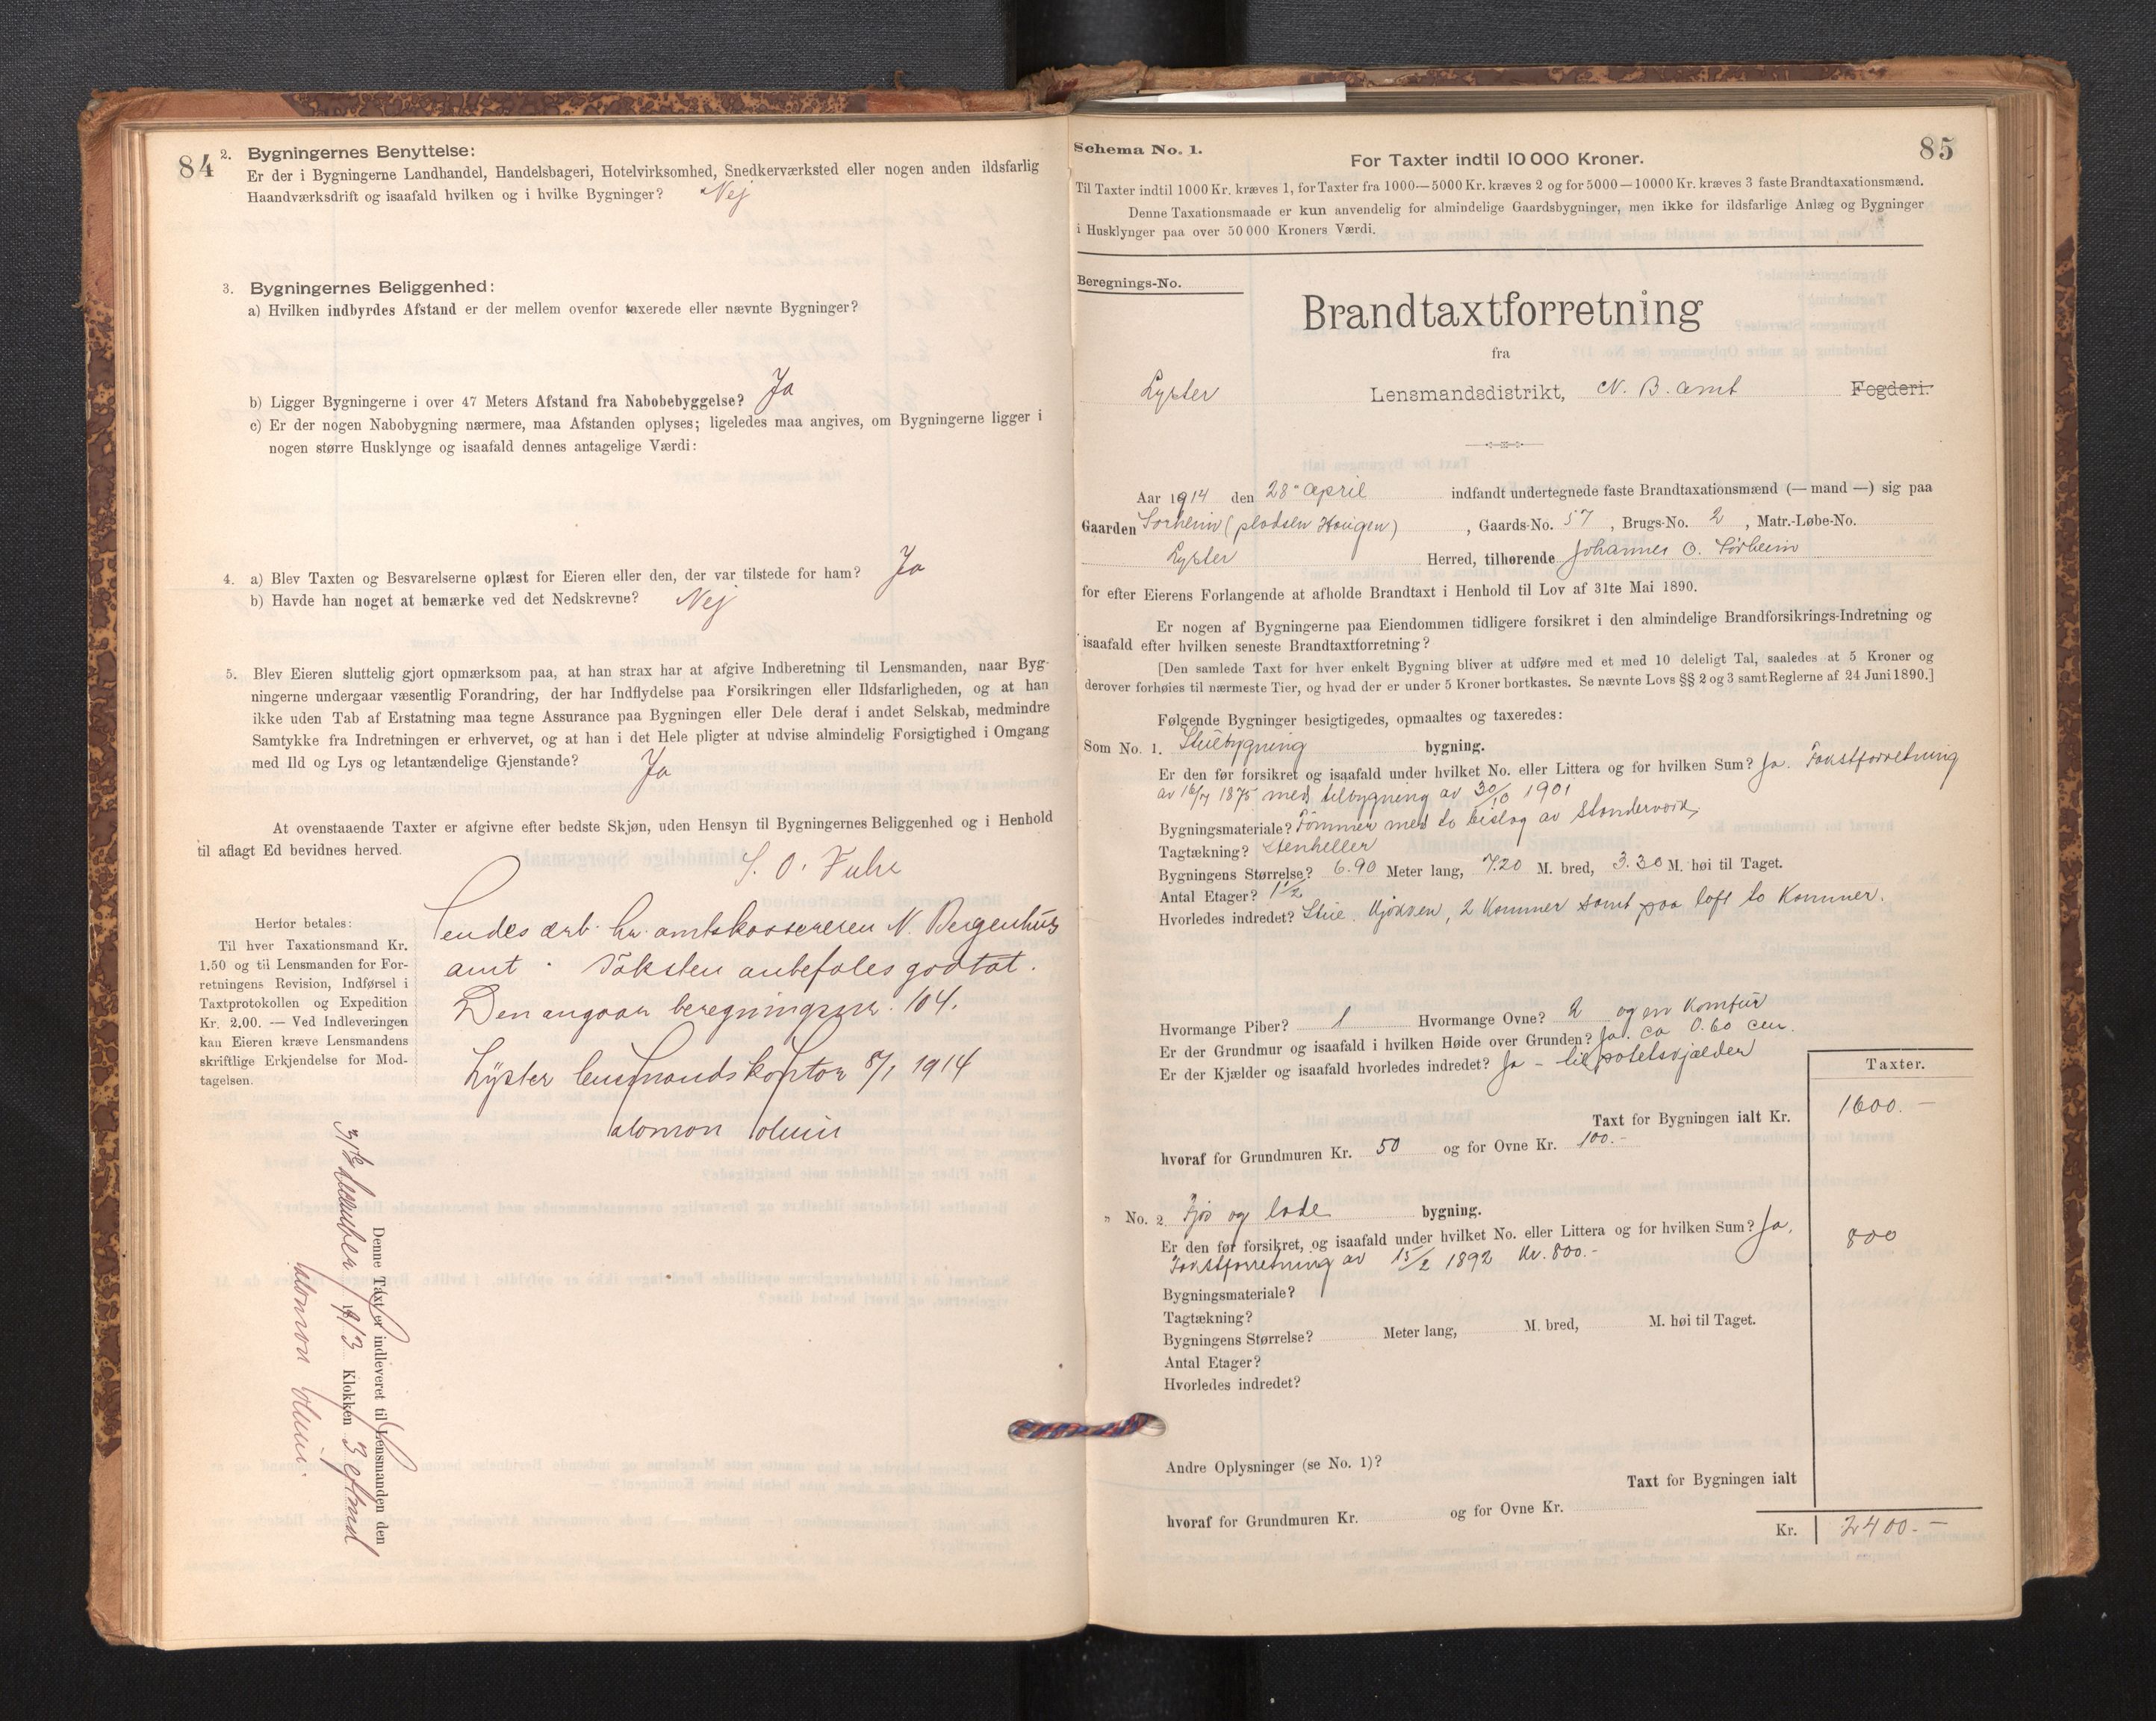 84
2. Bygningernes Benyttelse:
Er der i Bygningerne Landhandel, Handelsbageri, Hotelvirksomhed, Snedkerværksted eller nogen anden ildsfarlig
Haandværksdrift og isaafald hvilken og i hvilke Bygninger? Nej
3. Bygningernes Beliggenhed:
a) Hvilken indbyrdes Afstand er der mellem ovenfor taxerede eller nævnte Bygninger?
b) Ligger Bygningerne i over 47 Meters Afstand fra Nabobebyggelse? Ja
c) Er der nogen Nabobygning nærmere, maa Afstanden oplyses; ligeledes maa angives, om Bygningerne ligger i
nogen større Husklynge og isaafald dennes antagelige Værdi:
4. a) Blev Taxten og Besvarelserne oplæst for Eieren eller den, der var tilstede for ham? Ja
b) Havde han noget at bemærke ved det Nedskrevne? Nej
5. Blev Eieren sluttelig gjort opmærksom paa, at han strax har at afgive Indberetning til Lensmanden, naar Byg-
ningerne undergaar væsentlig Forandring, der har Indflydelse paa Forsikringen eller Ildsfarligheden, og at han
ikke uden Tab af Erstatning maa tegne Assurance paa Bygningen eller Dele deraf i andet Selskab, medmindre
Samtykke fra Indretningen er erhvervet, og at han i det Hele pligter at udvise almindelig Forsigtighed i Omgang
med Ild og Lys og letantændelige Gjenstande? Ja
At ovenstaaende Taxter er afgivne efter bedste Skjøn, uden Hensyn til Bygningernes Beliggenhed og i Henhold
til aflagt Ed bevidnes herved.
S. O. Fuhr
Sendes ærb. hr. amtskassereren N. Bergenhus
amt. Taksten anbefales godtat.
Den angaar beregningsnr. 104.
Lyster lensmandskontor 8/1 1914
Salomon Solheim
Herfor betales:
Til hver Taxationsmand Kr.
1.50 og til Lensmanden for For-
retningens Revision, Indførsel i
Taxtprotokollen og Expedition
Kr. 2.00. — Ved Indleveringen
kan Eieren kræve Lensmandens
skriftlige Erkjendelse for Mod-
tagelsen.
Denne Taxt er indleveret til Lensmanden den
31te desember 1913 Klokken 3 eftmd
Schema No. 1.
85
For Taxter indtil 10 000 Kroner.
Til Taxter indtil 1000 Kr. kræves 1, for Taxter fra 1000—5000 Kr. kræves 2 og for 5000—10000 Kr. kræves 3 faste Brandtaxationsmænd.
Denne Taxationsmaade er kun anvendelig for almindelige Gaardsbygninger, men ikke for ildsfarlige Anlæg og Bygninger
i Husklynger paa over 50 000 Kroners Værdi.
Beregnings-No.
Brandtaxtforretning
fra
Lyster Lensmandsdistrikt, N. B. amt Fogderi.
Aar 1914 den 28" April indfandt undertegnede faste Brandtaxationsmænd (— mand —) sig paa
Gaarden Sørheim (pladsen Haugen), Gaards-No. 57, Brugs-No. 2, Matr.-Løbe-No.
Lyster Herred, tilhørende Johannes O. Sørheim
for efter Eierens Forlangende at afholde Brandtaxt i Henhold til Lov af 31te Mai 1890.
Er nogen af Bygningerne paa Eiendommen tidligere forsikret i den almindelige Brandforsikrings-Indretning og
isaafald efter hvilken seneste Brandtaxtforretning?
[Den samlede Taxt for hver enkelt Bygning bliver at udføre med et med 10 deleligt Tal, saaledes at 5 Kroner og
derover forhøies til nærmeste Tier, og hvad der er under 5 Kroner bortkastes. Se nævnte Lovs §§ 2 og 3 samt Reglerne af 24 Juni 1890.]
Følgende Bygninger besigtigedes, opmaaltes og taxeredes:
Som No. 1. Stuebygning bygning.
Er den før forsikret og isaafald under hvilket No. eller Littera og for hvilken Sum? Ja. Takstforretning
av 16/7 1875 med tilbygning av 30/10 1901
Bygningsmateriale? Tømmer med to bislag av standerverk,
Tagtækning? Stenheller
Bygningens Størrelse? 6.90 Meter lang, 7.20 M. bred, 3.30 M. høi til Taget.
Antal Etager? 1 1/2
Hvorledes indredet? Stue. Kjøkken, 2 Kammer samt paa loft to Kammer.
Hvormange Piber? 1 Hvormange Ovne? 2 og en Komfur
Er der Grundmur og isaafald i hvilken Høide over Grunden? Ja. ca 0.60 cm.
Er der Kjælder og isaafald hvorledes indredet? Ja - til potetskjælder
Taxter.
Taxt for Bygningen ialt Kr. 1600.—
hvoraf for Grundmuren Kr. 50 og for Ovne Kr. 100.-
" No. 2. Fjøs og lade bygning.
Er den før forsikret, og isaafald under hvilket No. eller Littera og for hvilken Sum? Ja, 800
Takstforretning av 15/2 1892 Kr. 800.-
Bygningsmateriale?
Tagtækning?
Bygningens Størrelse? Meter lang, M. bred, M. høi til Taget.
Antal Etager?
Hvorledes indredet?
Andre Oplysninger (se No. 1)?
Taxt for Bygningen ialt
hvoraf for Grundmuren Kr. og for Ovne Kr.
Kr. 2400.—